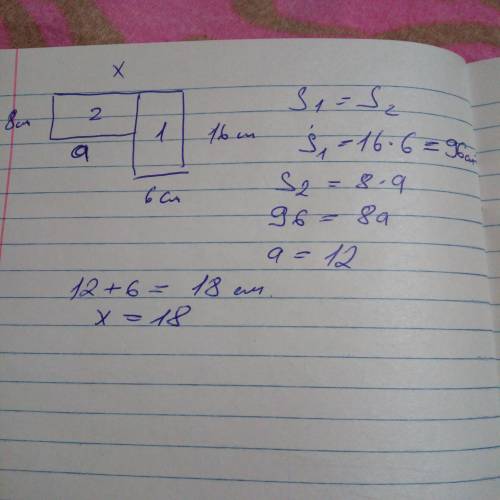 x
8см
2
1
16 см
a
6 см
S1 = S2
S1 = 16 · 6 = 96 см
S2 = 8 · a
96 = 8a
a = 12
12 + 6 = 18 см.
x = 18